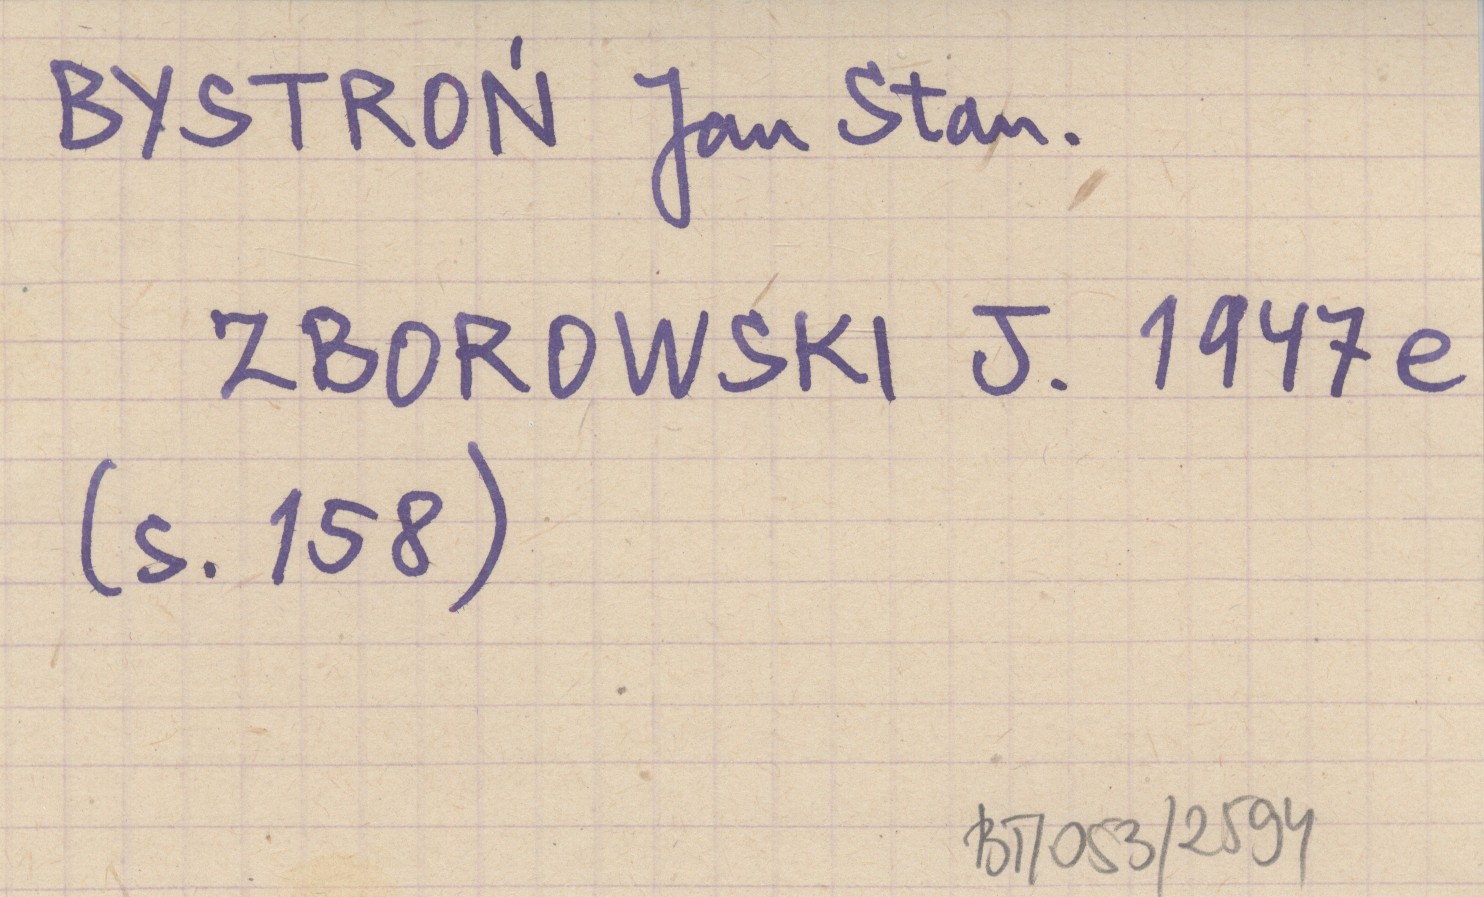 BYSTROŃ Jan Stan.
ZBOROWSKI J. 1947e
(s. 158)
BT/053/2594